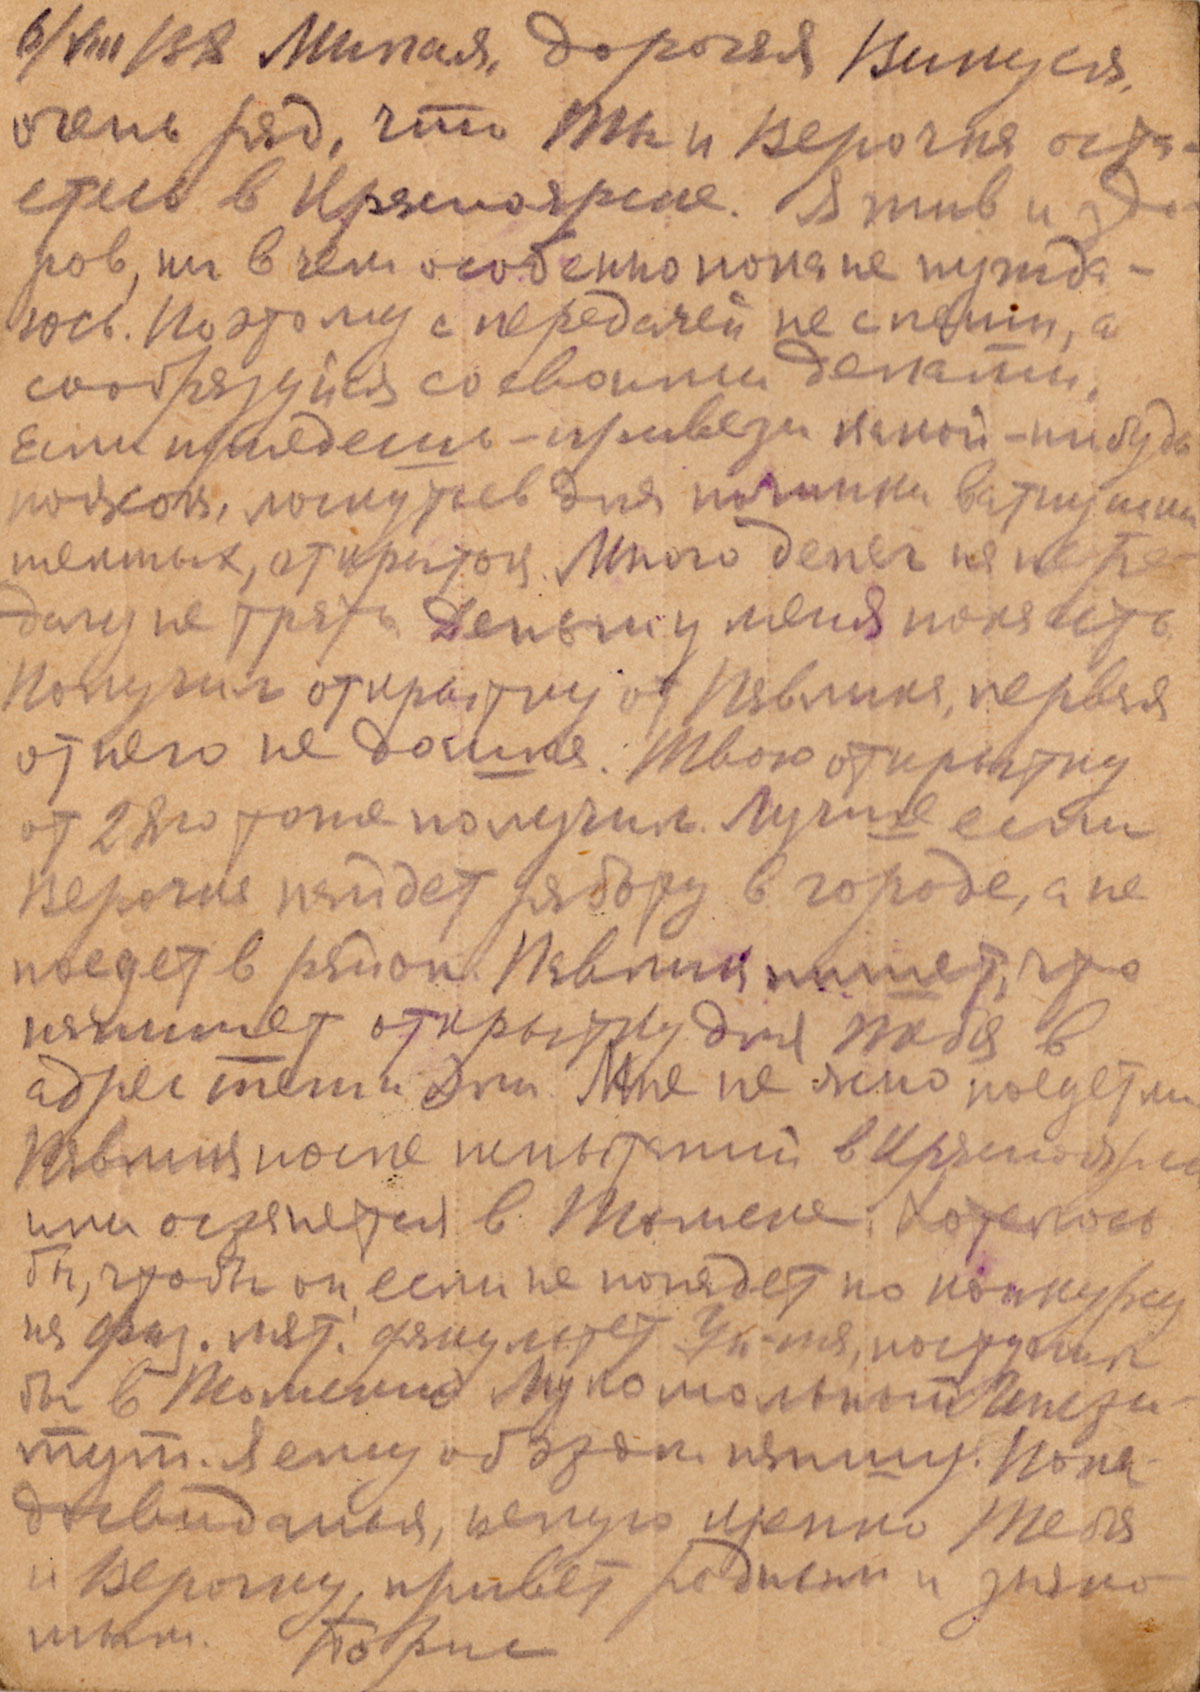 6/VIII/38 Милая, дорогая Винуся,
очень рад, что Ты и Верочка оста-
етесь в Красноярске. Я жив и здо-
ров, ни в чем особенно пока не нужда-
юсь. Поэтому с передачей не спеши, а
сообразуйся со своими делами.
Если приедешь – привези какой-нибудь
поясок, лоскутьев для починки
открыток. Много денег на пере-
дачу не трать. Деньги у меня пока есть.
Получил открытку от Павлика, первая
от него не дошла. Твою открытку
от 28го тоже получил. Лучше если
Верочка найдет работу в городе, а не
поедет в район. Павлик пишет, что
напишет открытку для Тебя в
адрес тети Мне не ясно поедет ли
Павлик после испытаний в Красноярск
или останется в Томске. Хотелось
бы, чтобы он, если не попадет по конкурсу
на физ. мат. факультет Ун-та, поступил
бы в Томский Мукомольный Инсти-
тут. Я ему об этом напишу. Пока
досвиданья, целую крепко Тебя
и Верочку, привет родным и знако-
мым. Борис